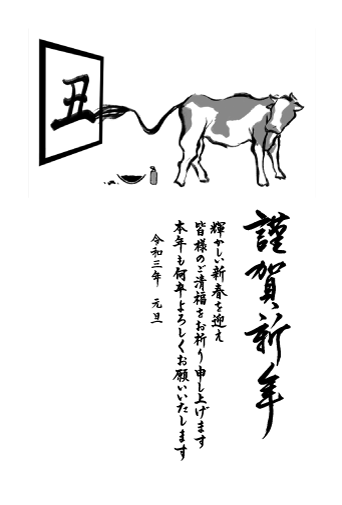 丑
謹賀新年
輝かしい新春を迎え
皆様のご清福をお祈り申し上げます
本年も何卒よろしくお願いいたします
令和三年 元旦